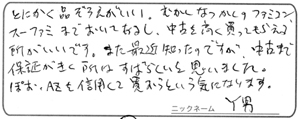 とにかく品ぞろえがいい。むかしなつかしのファミコン、
スーファミまでおいてあるし、中古を高く買ってもらえる
所がいいです。また最近知ったのですが、中古まで
保証がきく所はすばらしいと思いました。
ぽお、AZを信用して買おうという気になります。
ニックネーム Y男